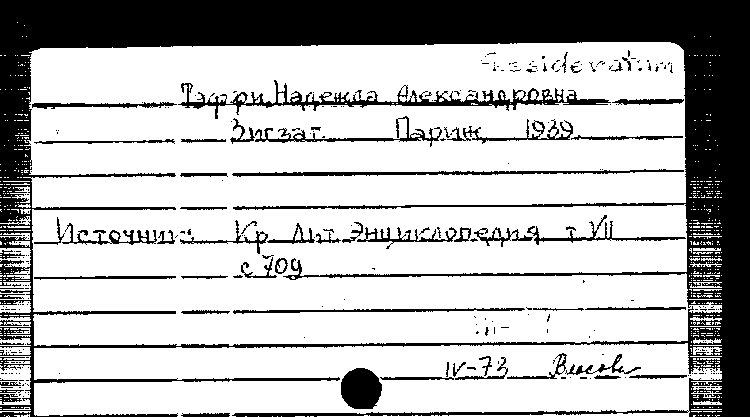 Desideratum
Тэффи, Надежда Александровна
Зигзаг. Париж, 1939.
Источник: Кр. Лит. Энциклопедия т. VII
с 709
IV-73 Власова